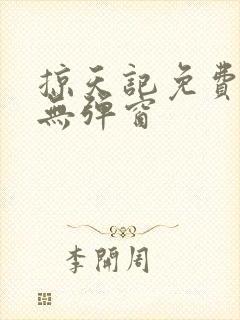 掠天記免費
無彈窗
李開周